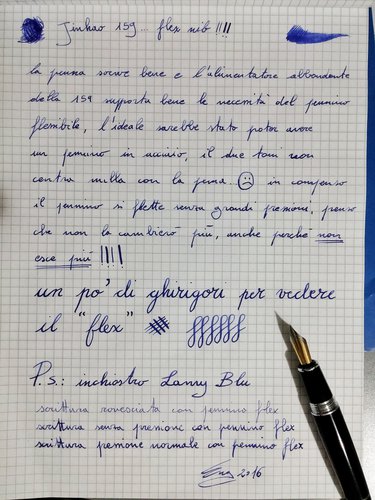 Jinhao 159... flex nib !!!!
la penna scrive bene e l'alimentatore abbondante
della 159 supporta bene le necessità del pennino
flessibile, l'ideale sarebbe stato poter avere
un pennino in acciaio, il due toni non
centra nulla con la penna... ☹ in compenso
il pennino si flette senza grandi pressioni, penso
che non la cambierò più, anche perché non
esce più !!!!
un po' di ghirigori per vedere
il "flex"
P.S.: inchiostro Lamy Blu
scrittura rovesciata con pennino flex
scrittura senza pressione con pennino flex
scrittura pressione normale con pennino flex
2016